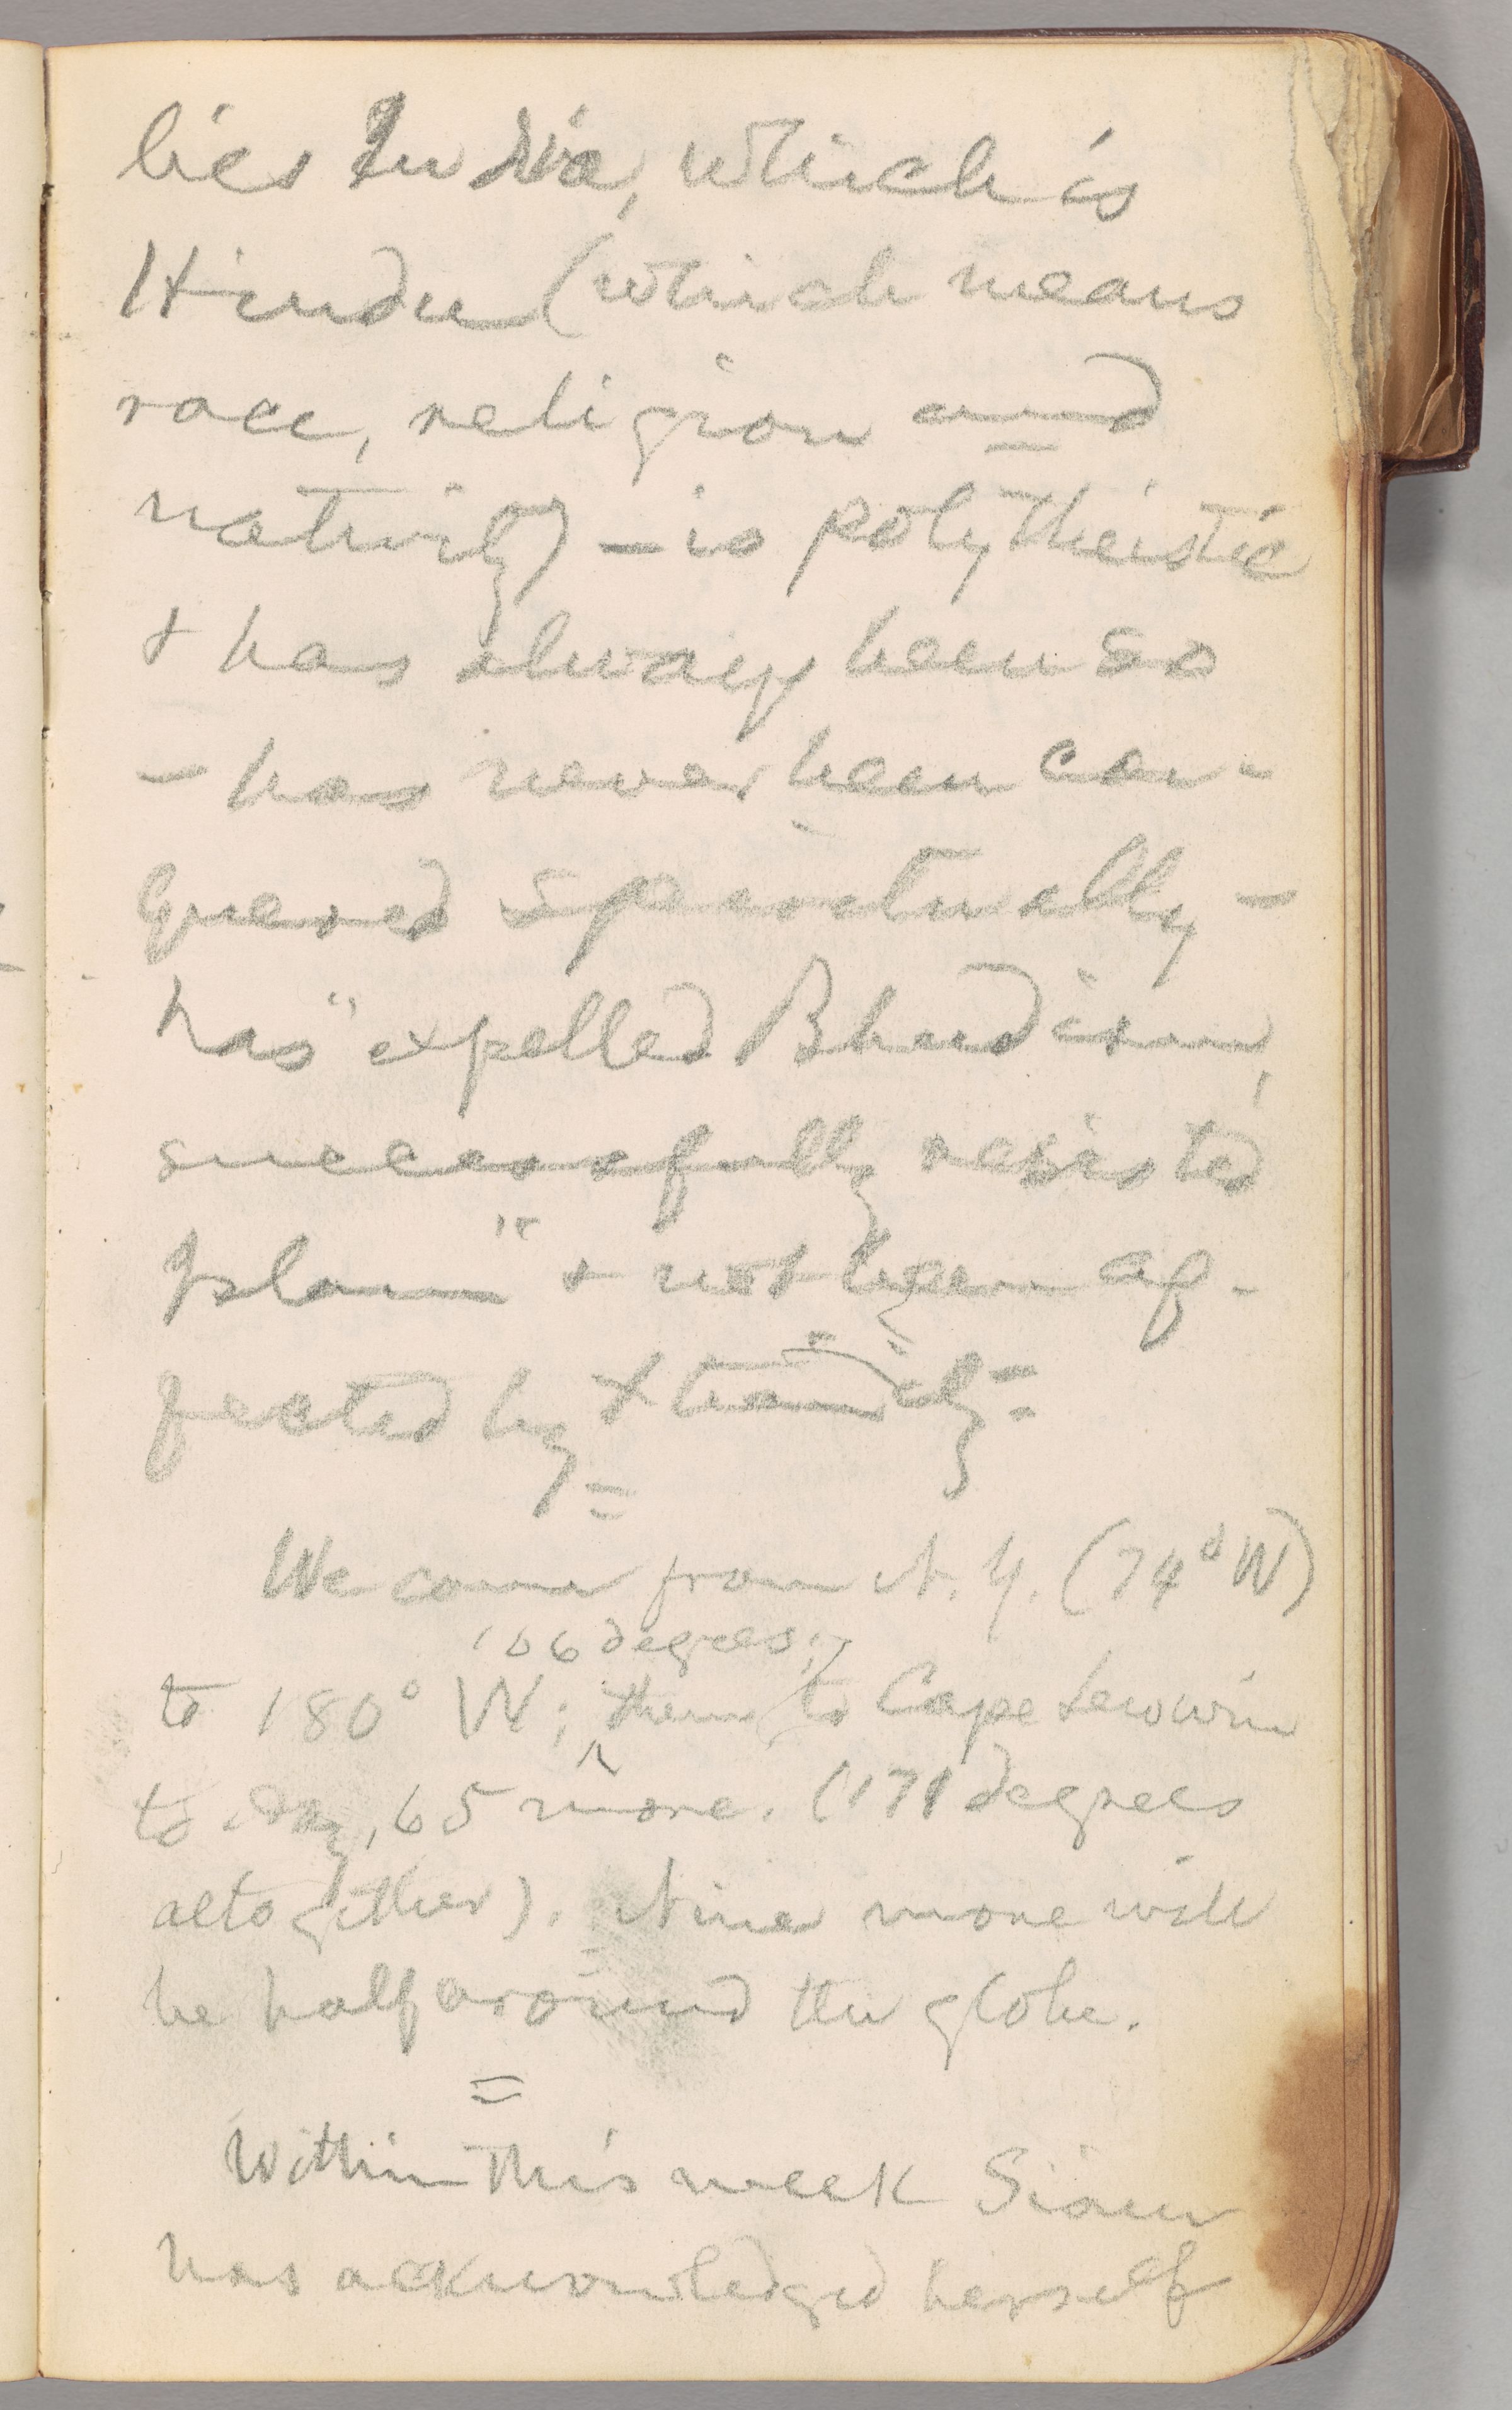 lies India, which is
Hindu (which means
race, religion and
nativity) — is polytheistic
+ has always been so
— has never been con-
quered spiritually —
has "expelled Bhudism,
successfully resisted
Islam" + not been af-
fected by Xtianity.
We come from N. Y. (74° W)
106 degrees;
to 180° W; then to Cape Lewwin
to-day, 65 more. (171 degrees
altogether). Nine more will
be half around the globe.
=
Within this week Siam
has acknowledged herself